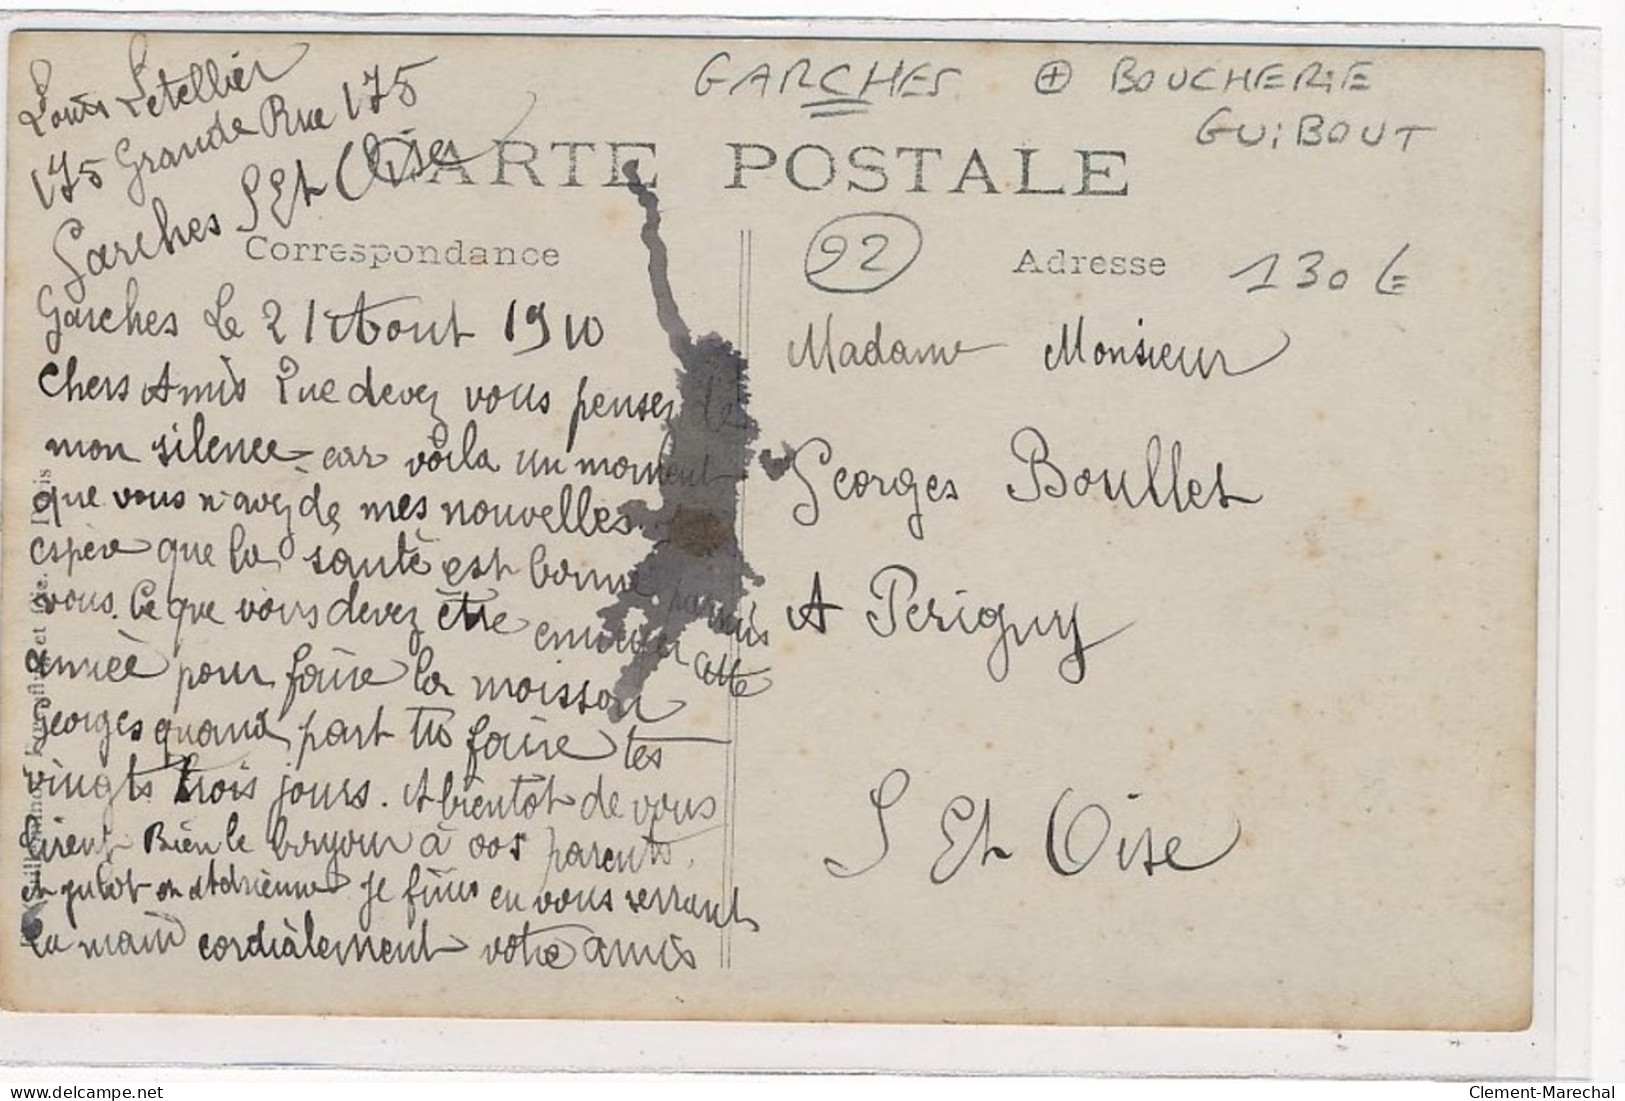 Louis Letellier
175 Grande Rue 175
Garches S Et Oise
GARCHES + BOUCHERIE
GUiBOUT
CARTE POSTALE
Correspondance
92
Adresse
130 €
Garches Le 21 Aout 1910
Chers Amis Que devez vous pensez de
mon silence car voila un moment
que vous n'avez de mes nouvelles
espere que la santé est bonne parmis
vous. Ce que vous devez être ennuyer cette
année pour faire la moisson
Georges quand part tu faire tes
vingts trois jours. A bientot de vous
lirent Bien le bonjour à vos parents.
et Adrienne je finis en vous serrant
la main cordialement votre amis
Madame Monsieur
Georges Boullet
A Perigny
S Et Oise
Clement-Marechal